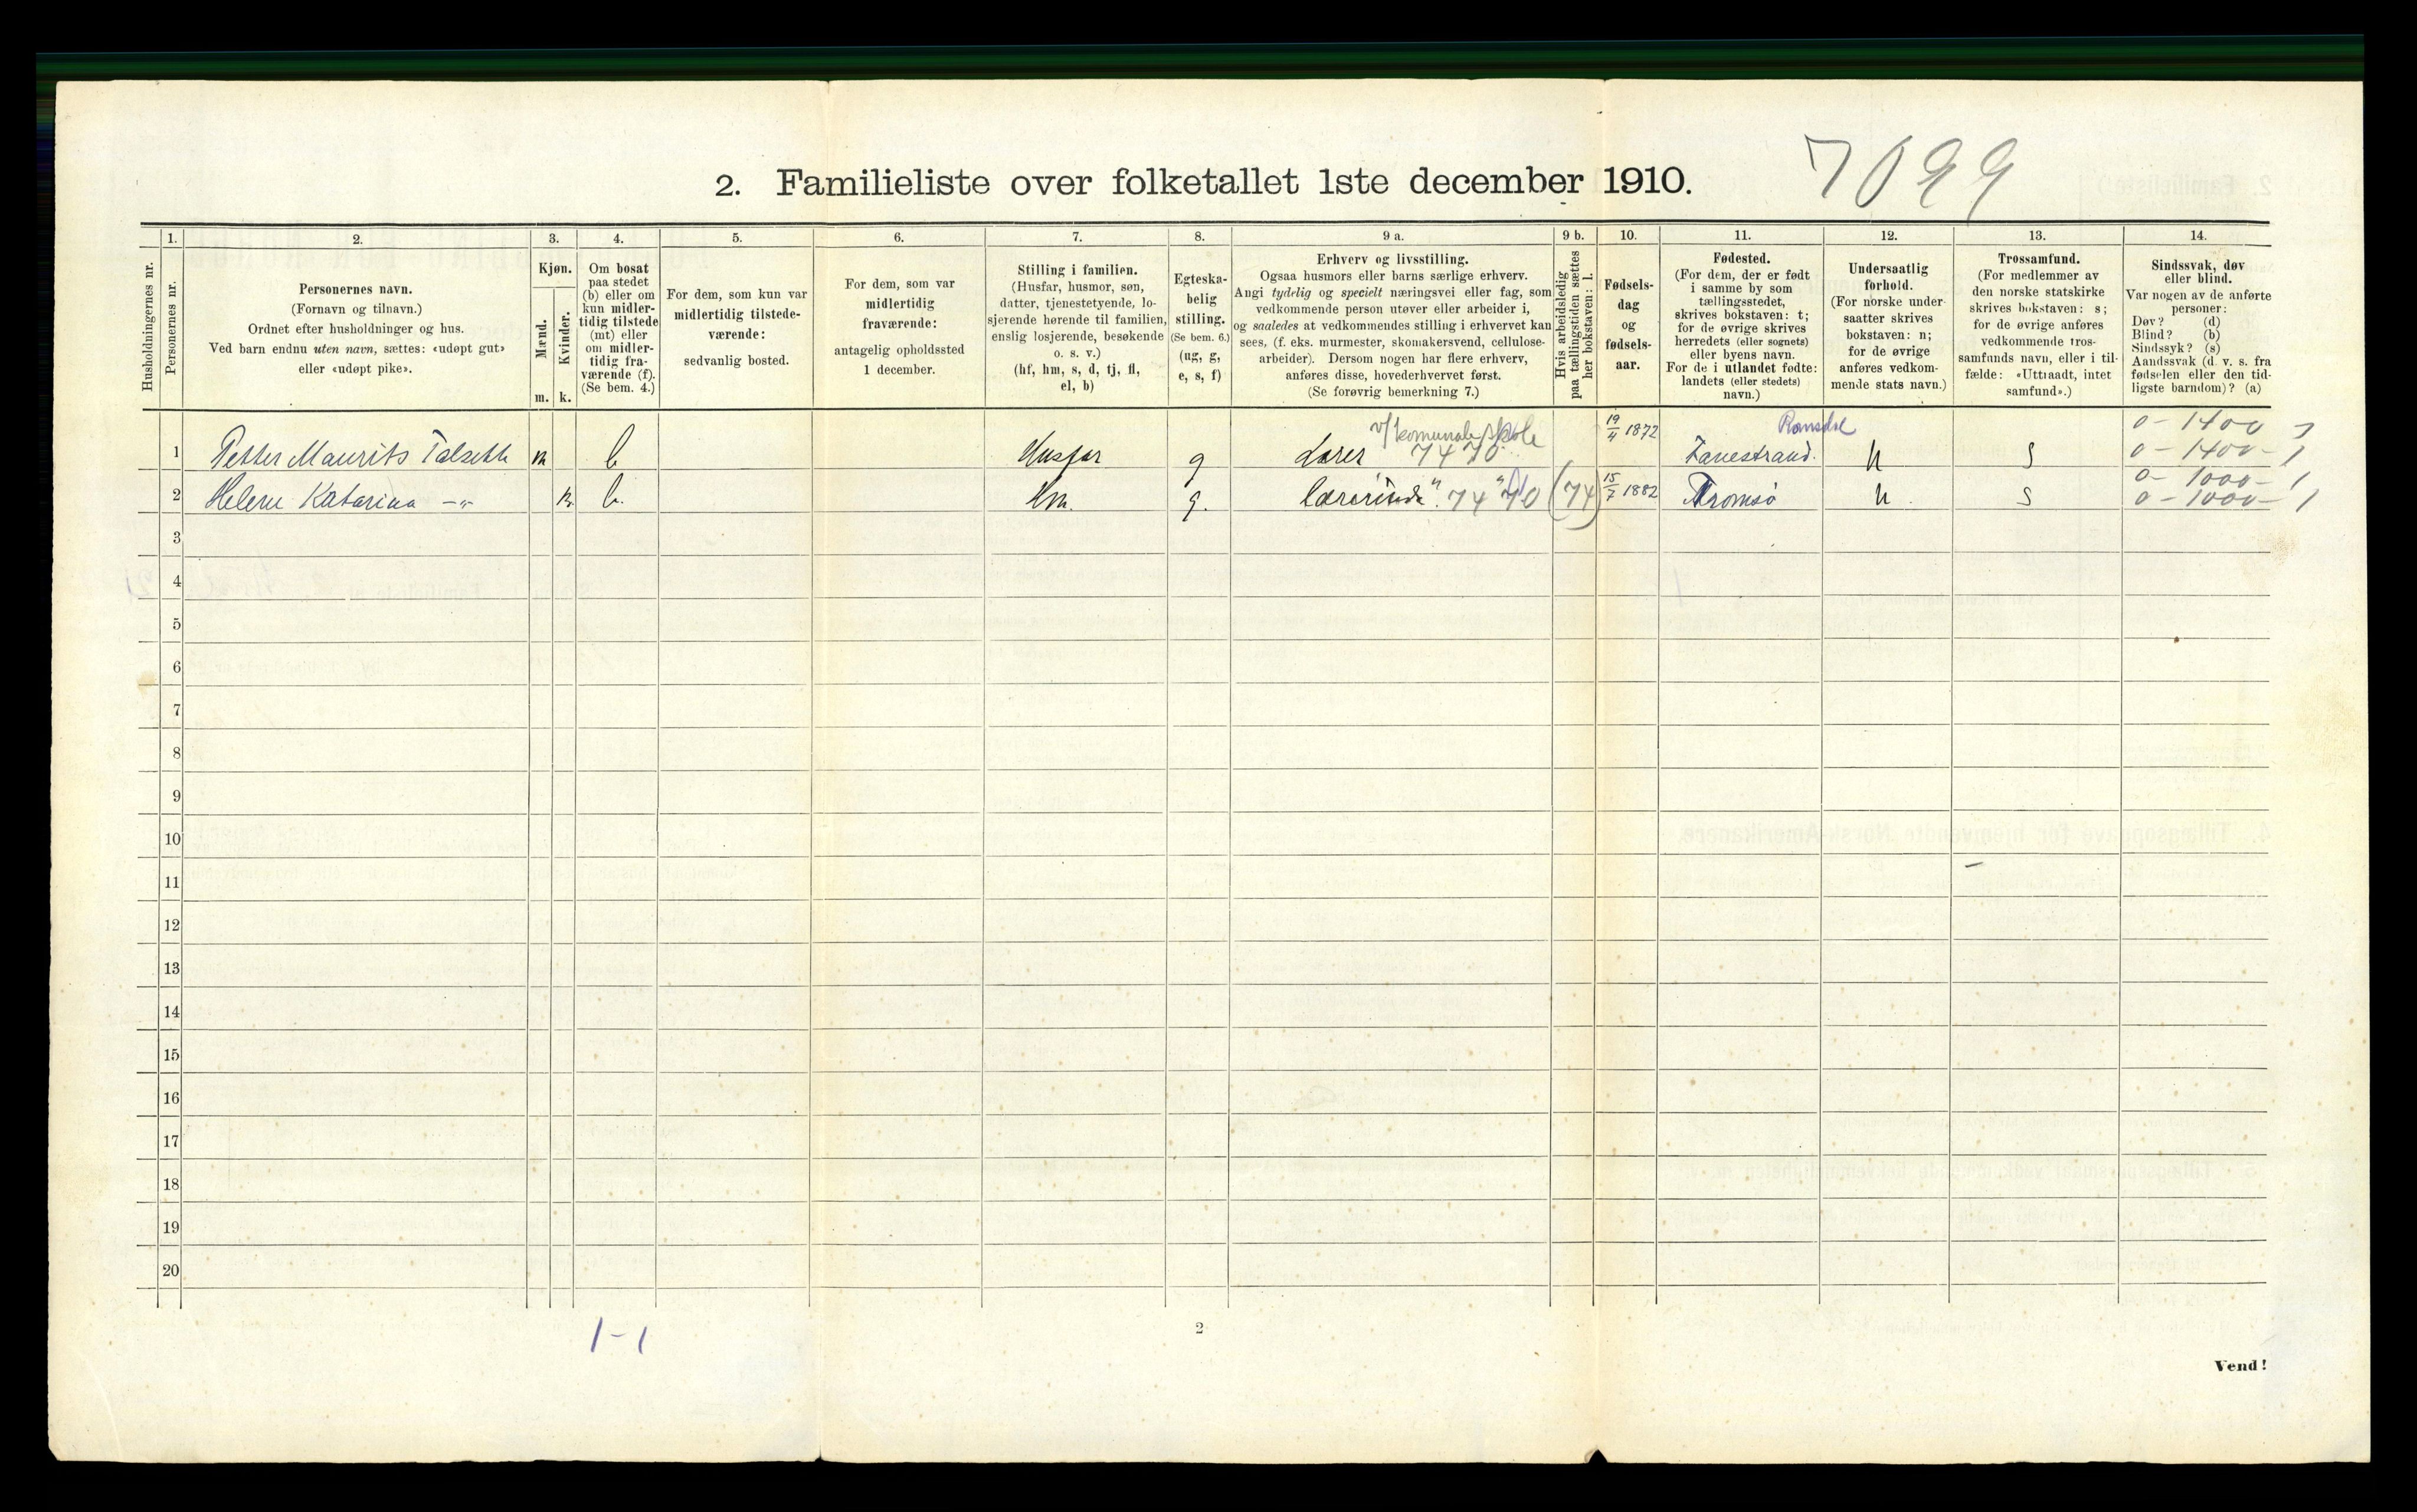 7099
2. Familieliste over folketallet 1ste december 1910.
Husholdningernes nr.
1.
Personernes nr.
2.
Personernes navn.
(Fornavn og tilnavn.)
Ordnet efter husholdninger og hus.
Ved barn endnu uten navn, sættes: «udøpt gut»
eller «udøpt pike».
3.
Kjøn.
Mænd.
Kvinder.
m. k.
4.
Om bosat
paa stedet
(b) eller om
kun midler-
tidig tilstede
(mt) eller
om midler-
tidig fra-
værende (f).
(Se bem. 4.)
5.
For dem, som kun var
midlertidig tilstede-
værende:
sedvanlig bosted.
6.
For dem, som var
midlertidig
fraværende:
antagelig opholdssted
1 december.
7.
Stilling i familien.
(Husfar, husmor, søn,
datter, tjenestetyende, lo-
sjerende hørende til familien,
enslig losjerende, besøkende
o. s. v.)
(hf, hm, s, d, tj, fl,
el, b)
8.
Egteska-
belig
stilling.
(Se bem. 6.)
(ug, g,
e, s, f)
9 a.
Erhverv og livsstilling.
Ogsaa husmors eller barns særlige erhverv.
Angi tydelig og specielt næringsvei eller fag, som
vedkommende person utøver eller arbeider i,
og saaledes at vedkommendes stilling i erhvervet kan
sees, (f. eks. murmester, skomakersvend, cellulose-
arbeider). Dersom nogen har flere erhverv,
anføres disse, hovederhvervet først.
(Se forøvrig bemerkning 7.)
9 b.
Hvis arbeidsledig
paa tællingstiden sættes
her bokstaven: l.
10.
Fødsels-
dag
og
fødsels-
aar.
11.
Fødested.
(For dem, der er født
i samme by som
tællingsstedet,
skrives bokstaven: t;
for de øvrige skrives
herredets (eller sognets)
eller byens navn.
For de i utlandet fødte:
landets (eller stedets)
navn.)
12.
Undersaatlig
forhold.
(For norske under-
saatter skrives
bokstaven: n;
for de øvrige
anføres vedkom-
mende stats navn.)
13.
Trossamfund.
(For medlemmer av
den norske statskirke
skrives bokstaven: s;
for de øvrige anføres
vedkommende tros-
samfunds navn, eller i til-
fælde: «Uttraadt, intet
samfund».)
14.
Sindssvak, døv
eller blind.
Var nogen av de anførte
personer:
Døv? (d)
Blind? (b)
Sindssyk? (s)
Aandssvak (d. v. s. fra
fødselen eller den tid-
ligste barndom)? (a)
v/ komunale skole 19/4 1872 Romsdal 0-1400
1 Petter Maurits Talseth m b Husfar g Lærer 7470 Fanestrand. n s 0-1400-1
0-1000-1
2 Helene Katarina -"- k b. Hm. g. Lærerinde " 74 " 70 (74) 15/7 1882 Tromsø n. s 0-1000-1
3
4
5
6
7
8
9
10
11
12
13
14
15
16
17
18
19
20
1-1
2
Vend!